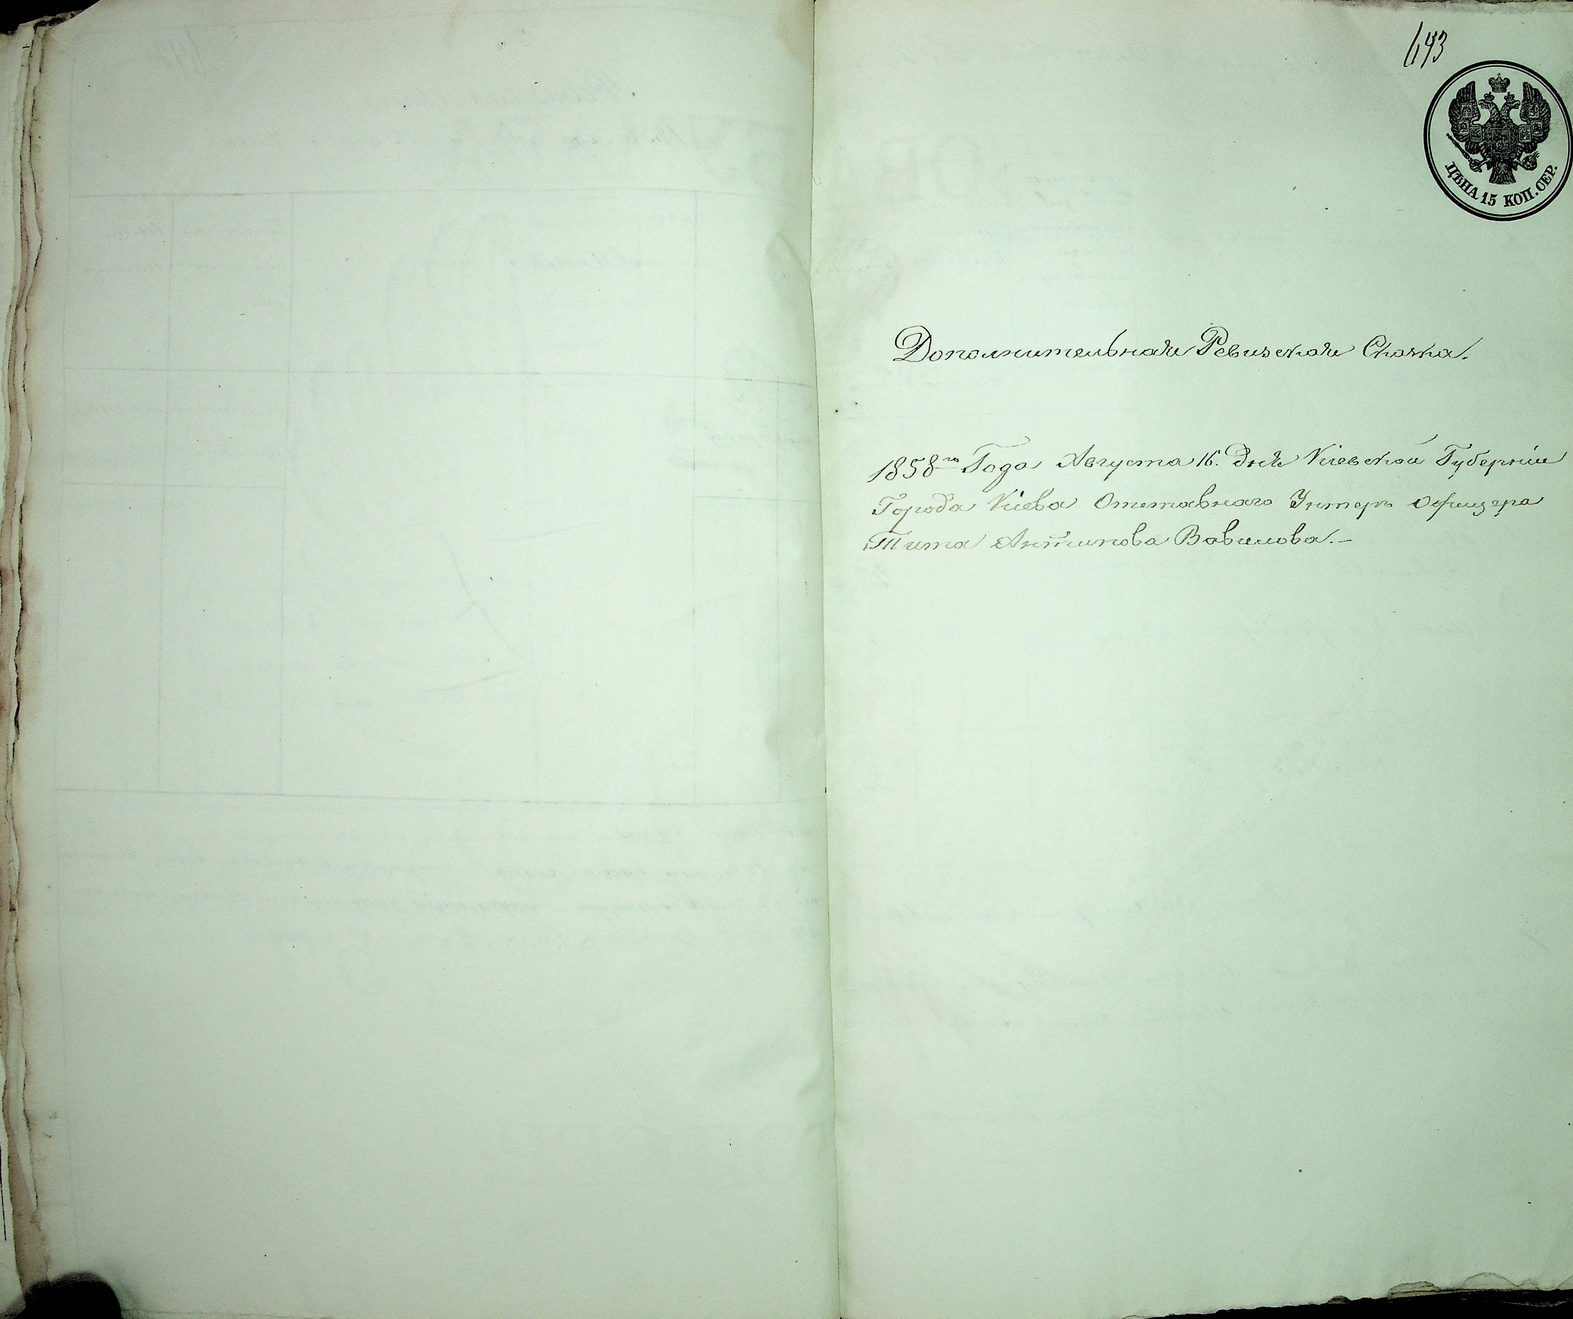 643
ЦѢНА 15 КОП. СЕР.
Дополнительная Ревизская Сказка.
1858го Года Августа 16. дня Кіевской Губерніи
Города Кіева Отставнаго Унтеръ Офицера
Тита Антипова Вавилова.-